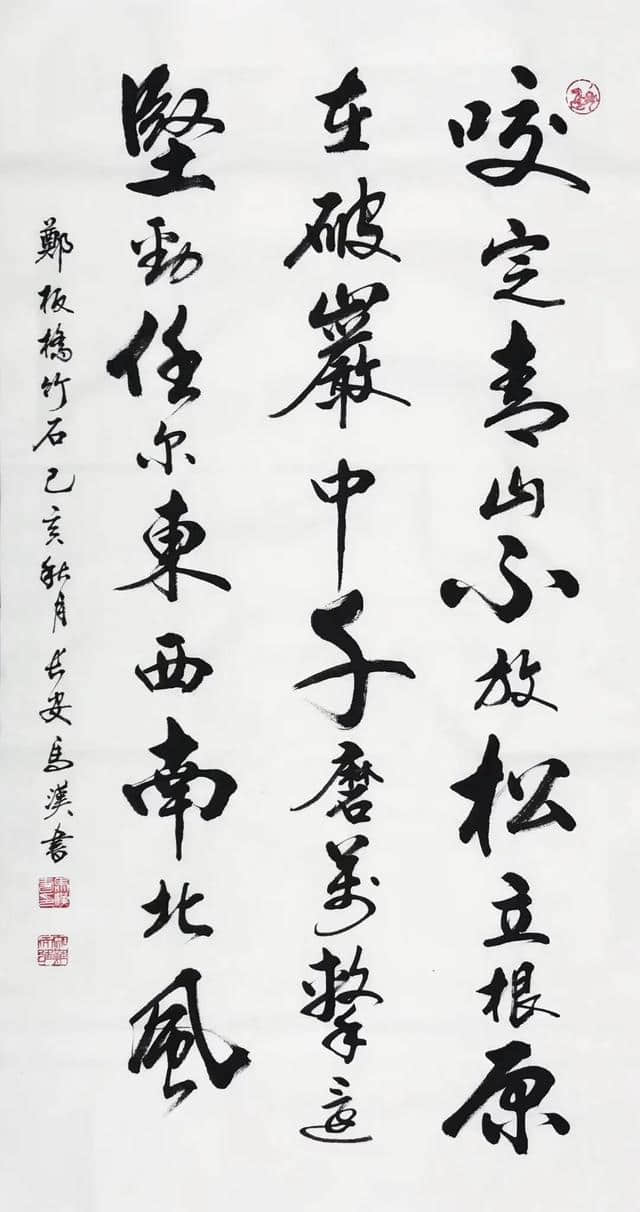 咬定青山不放松立根原
在破巖中千磨萬擊還
堅勁任尔東西南北風
鄭板橋竹石己亥秋月長安馬漢書